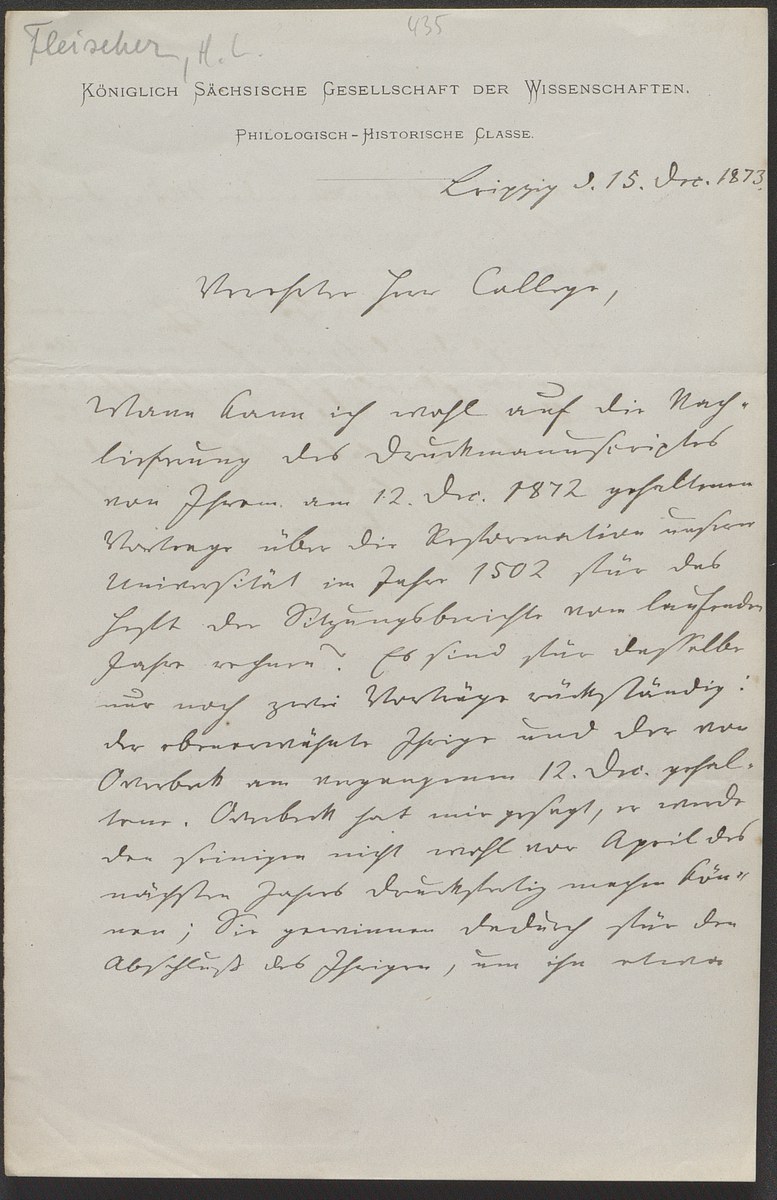 Fleischer, H. L.
435
Königlich Sächsische Gesellschaft der Wissenschaften.
Philologisch-Historische Classe.
Leipzig d. 15. Dec. 1873.
Verehrter Herr College,
Wann kann ich wohl auf die Nach-
lieferung des Druckmanuscriptes
von Ihrem am 12. Dec. 1872 gehaltenen
Vortrage über die Reformation unserer
Universität im Jahre 1502 für das
Heft der Sitzungsberichte vom laufenden
Jahre rechnen? Es sind für dasselbe
nur noch zwei Vorträge rückständig:
der obenerwähnte Ihrige und der von
Overbeck am vergangenen 12. Dec. gehal-
tene. Overbeck hat mir gesagt, er werde
den seinigen nicht wohl vor April des
nächsten Jahres druckfertig machen kön-
nen; Sie gewinnen dadurch für den
Abschluß des Ihrigen, um ihn etwa